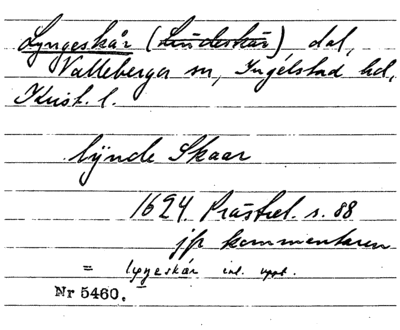 Lyngeskår (Lindeskär), dal,
Valleberga sn, Ingelstad hd,
Krist. l.
lÿnde Skaar
1624. Prästrel. s. 88
jfr kommentaren
= lyngeskår enl. uppt.
Nr 5460.